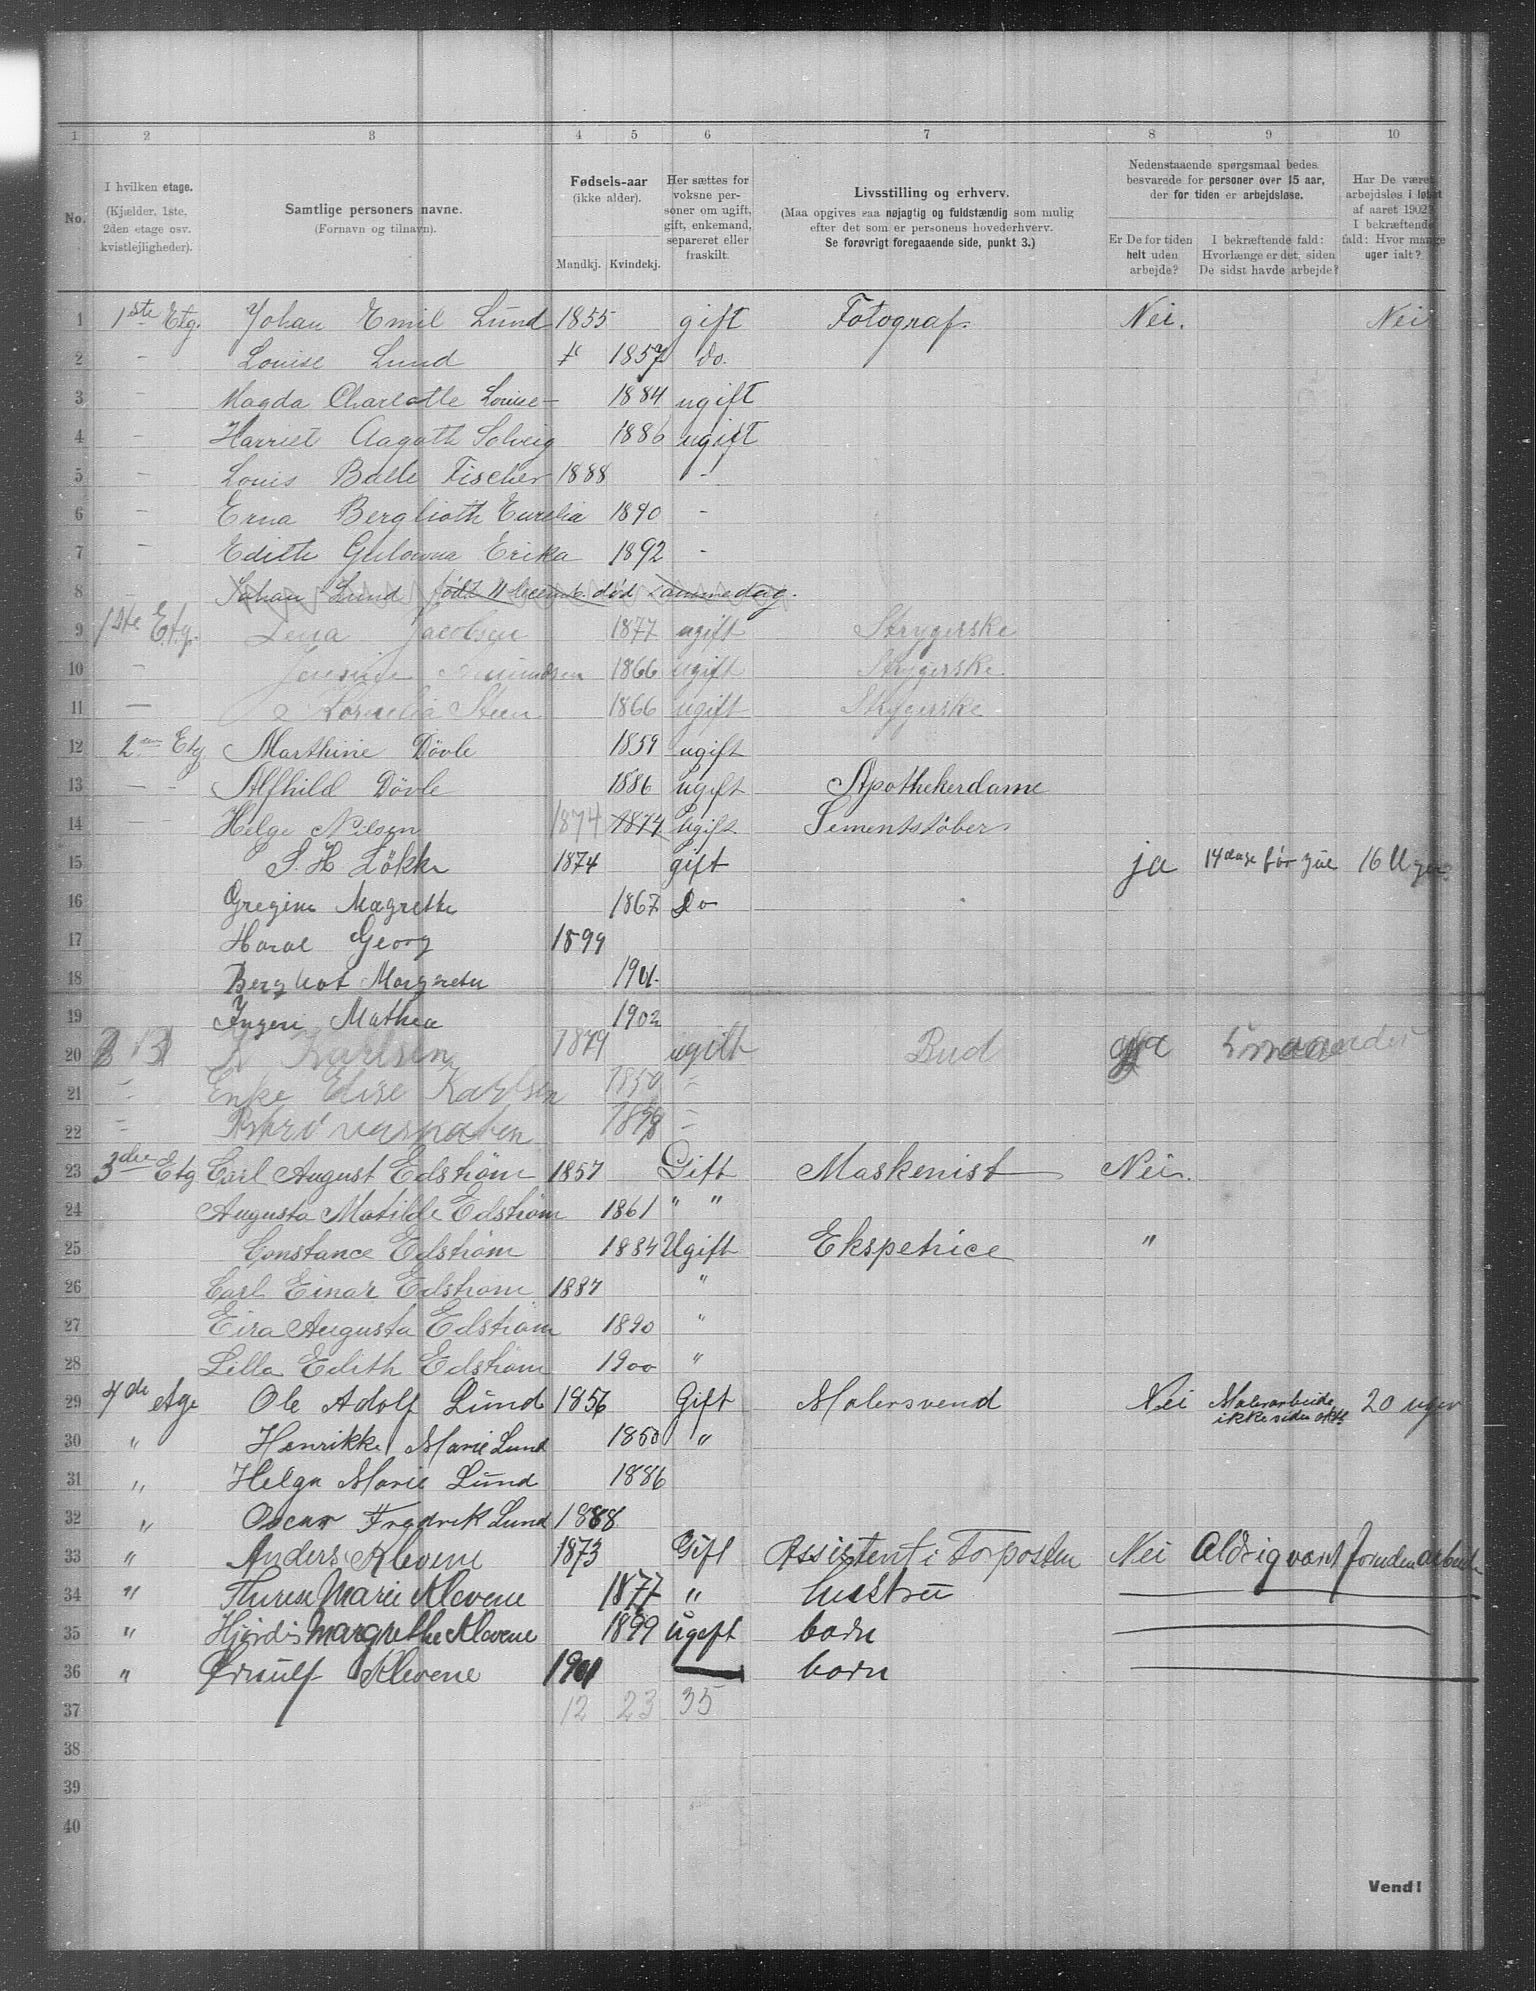 1 2 3 4 5 6 7 8 9 10
No.
I hvilken etage. (Kjælder, 1ste, 2den etage osv. kvistlejligheder).
Samtlige personers navne. (Fornavn og tilnavn).
Fødsels-aar (ikke alder). Mandkj. Kvindekj.
Her sættes for voksne personer om ugift, gift, enkemand, separeret eller fraskilt.
Livsstilling og erhverv. (Maa opgives saa nøjagtig og fuldstændig som mulig efter det som er personens hovederhverv. Se forøvrigt foregaaende side, punkt 3.)
Nedenstaaende spørgsmaal bedes besvarede for personer over 15 aar, der for tiden er arbejdsløse.
Er De for tiden helt uden arbejde?
I bekræftende fald: Hvorlænge er det, siden De sidst havde arbejde?
Har De været arbejdsløs i løbet af aaret 1902? I bekræftende fald: Hvor mange uger ialt?
1 1ste Etg. Johan Emil Lund 1855 gift Fotograf. Nei. Nei
2 - Louise Lund 1857 do.
3 - Magda Charlotte Louise - 1884 ugift
4 - Harriet Aagoth Solveig 1886 ugift
5 - Louis Balle Fischer 1888 -
6 - Erna Berglioth Eurelia 1890 -
7 - Edith Gulowna Erika 1892 -
8 - Johan Lund født 11 decemb. død samme dag.
9 1ste Etg. Lena Jacobsen 1877 ugift Strygerske
10 - 1866 ugift Strygerske
11 - Kornelia Steen 1866 ugift Strygerske
12 2den Etg Marthine Døvle 1859 ugift
13 - - Alfhild Døvle 1886 ugift Apothekerdame
14 - - Helge Nilsen 1874 1874 Ugift Sementstøber
15 S. H Løkke 1874 gift ja 14 dage før jul 16 Uger
16 Gregine Magrethe 1867 Do
17 Haral Georg 1899
18 Bergliot Margrete 1901.
19 Ingeri Mathea 1902
20 Karlsen 1879 ugift Bud ja
21 - Enke Elise Karlsen 1850 -
22 -
23 3die Etg Carl August Edstrøm 1857 Gift Maskenist Nei.
24 Augusta Matilde Edstrøm 1861 " "
25 Constance Edstrøm 1884 Ugift Ekspetrice "
26 Carl Einar Edstrøm 1887 "
27 Eira Augusta Edstrøm 1890 "
28 Lilla Edith Edstrøm 1900 "
29 4de Etge Ole Adolf Lund 1856 Gift Malersvend Nei Malerarbeide ikke siden okt 20 uger
30 " Henrikke Marie Lund 1850 "
31 " Helga Marie Lund 1886
32 " Oscar Fredrik Lund 1888
33 " Anders Klevene 1873 Gift Assistent i Torposten Nei Aldrig vært foruden arbeide
34 " Therese Marie Klevene 1877 " hustru
35 " Hjørdis Margrethe Klevene 1899 ugift barn
36 " Ørnulf Klevene 1901 barn
37 12 23 35
38
39
40
Vend!